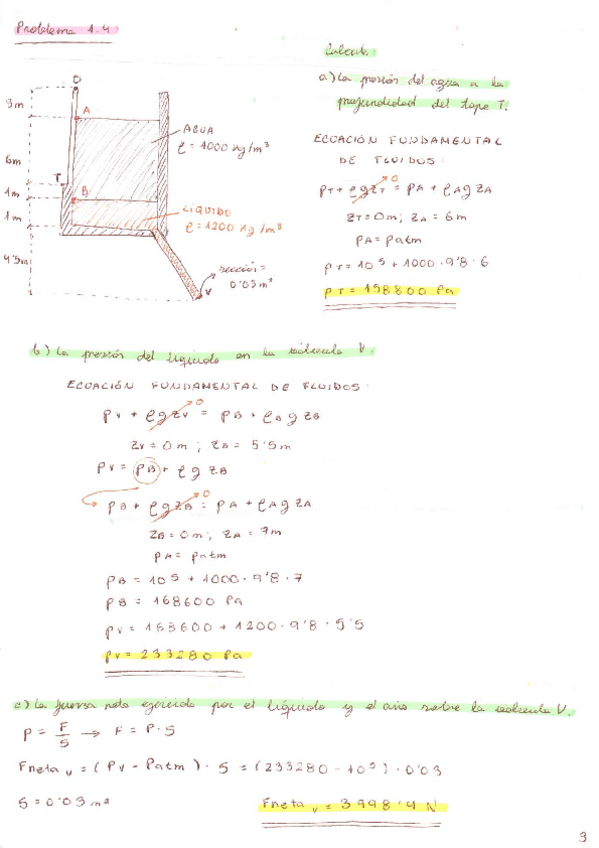 Problema 1.4
Calcular:
a) La presión del agua a la
profundidad del tape T.
D
3m
A
AGUA
ρ = 1000 kg/m³
6m
T
1m
B
LÍQUIDO
ρ = 1200 kg/m³
1m
4'5m
sección =
0'03 m²
V
ECUACIÓN FUNDAMENTAL
DE FLUIDOS:
pT + ρgzT = pA + ρAgzA
0
zT = 0m; zA = 6m
pA = patm
pT = 10⁵ + 1000 · 9'8 · 6
pT = 158800 Pa
b) La presión del líquido en la válvula V.
ECUACIÓN FUNDAMENTAL DE FLUIDOS:
pV + ρgzV = pB + ρBgzB
0
zV = 0m ; zB = 5'5m
pV = pB + ρgzB
pB + ρgzB = pA + ρAgzA
0
zB = 0m; zA = 7m
pA = patm
pB = 10⁵ + 1000 · 9'8 · 7
pB = 168600 Pa
pV = 168600 + 1200 · 9'8 · 5'5
pV = 233280 Pa
c) La fuerza neta ejercida por el líquido y el aire sobre la válvula V.
P = F/S → F = P · S
Fneta V = (PV - Patm) · S = (233280 - 10⁵) · 0'03
S = 0'03 m²
Fneta V = 3998'4 N
3